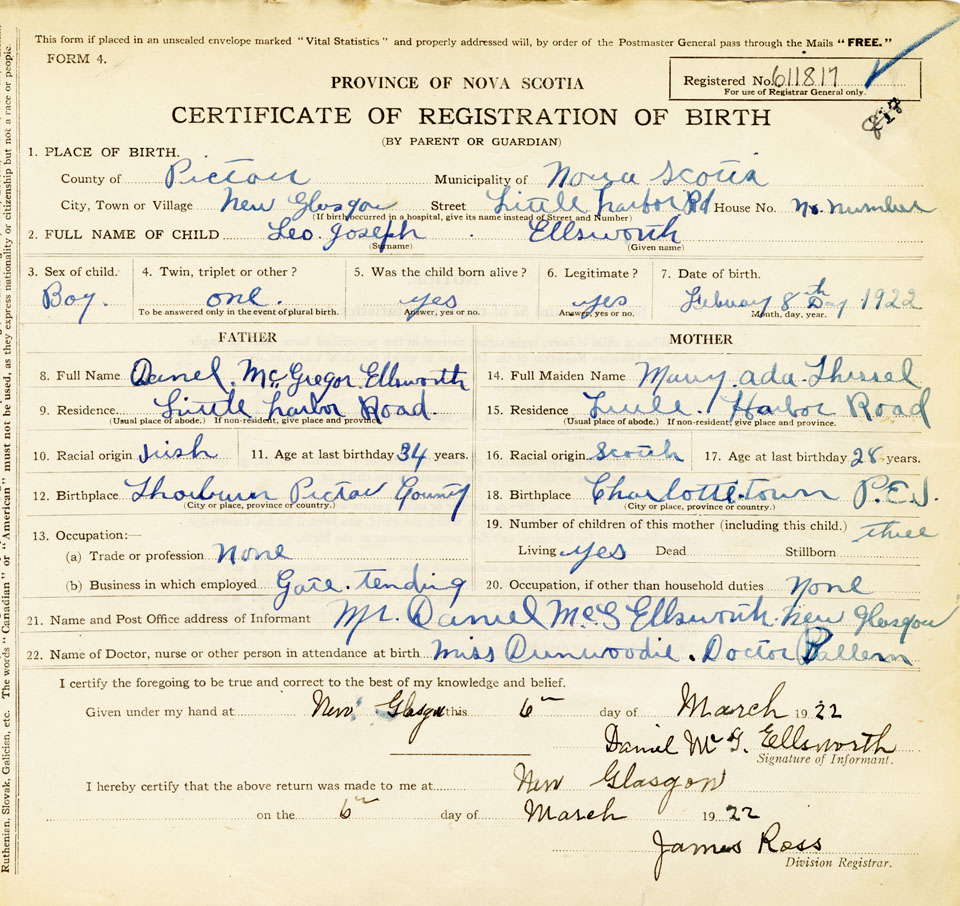 This form if placed in an unsealed envelope marked "Vital Statistics" and properly addressed will, by order of the Postmaster General pass through the Mails "FREE."
FORM 4.
PROVINCE OF NOVA SCOTIA
Registered No. 611817
For use of Registrar General only.
CERTIFICATE OF REGISTRATION OF BIRTH
(BY PARENT OR GUARDIAN)
1. PLACE OF BIRTH.
County of Pictou Municipality of Nova Scotia
City, Town or Village New Glasgow Street Little harbor Rd House No. no. number
(If birth occurred in a hospital, give its name instead of Street and Number)
2. FULL NAME OF CHILD Leo. Joseph . Ellsworth
(Surname) (Given name)
3. Sex of child. 4. Twin, triplet or other? 5. Was the child born alive? 6. Legitimate? 7. Date of birth.
Boy. one. yes yes Febuary 8th Day 1922
To be answered only in the event of plural birth. Answer, yes or no. Answer, yes or no. Month, day, year.
FATHER MOTHER
8. Full Name Danel. McGregor Ellsworth 14. Full Maiden Name Mary ada
9. Residence Little harbor Road. 15. Residence Little. Harbor Road
(Usual place of abode.) If non-resident, give place and province. (Usual place of abode.) If non-resident, give place and province.
10. Racial origin Irish 11. Age at last birthday 34 years. 16. Racial origin Scotch 17. Age at last birthday 28 years.
12. Birthplace Thorburn Pictou County 18. Birthplace Charlotte.town P.E.I.
(City or place, province or country.) (City or place, province or country.)
13. Occupation:— 19. Number of children of this mother (including this child.) three
(a) Trade or profession None Living yes Dead Stillborn
(b) Business in which employed Gate. tending 20. Occupation, if other than household duties None
21. Name and Post Office address of Informant Mr. Daniel McG Ellsworth. New Glasgow
22. Name of Doctor, nurse or other person in attendance at birth miss Dunwoodie. Doctor
I certify the foregoing to be true and correct to the best of my knowledge and belief.
Given under my hand at New Glasgow this 6th day of March 1922
Daniel McG. Ellsworth
Signature of Informant.
I hereby certify that the above return was made to me at New Glasgow
on the 6th day of March 1922
James Ross
Division Registrar.
Ruthenian, Slovak, Galician, etc. The words "Canadian" or "American" must not be used, as they express nationality or citizenship but not a race or people.